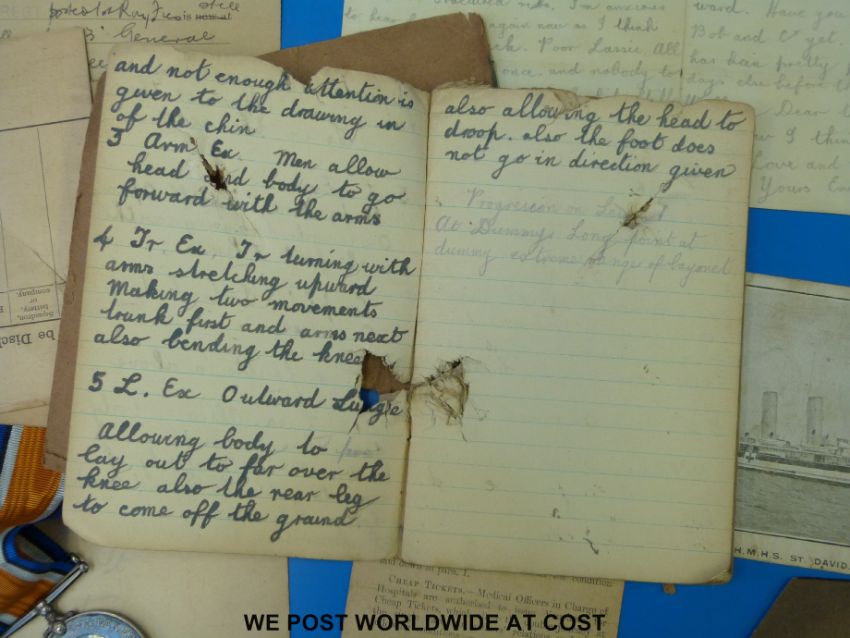 posted 1st Ray
still
is normal
"B" General
and not enough attention is
given to the drawing in
of the chin
3 Arm Ex. Men allow
head and body to go
forward with the arms
4 Tr. Ex. Tr turning with
arms stretching upward
Making two movements
trunk first and arms next
also bending the knee
5 L. Ex Outward Lunge
Allowing body to
lay out to far over the
knee also the rear leg
to come off the ground
also allowing the head to
droop. also the foot does
not go in direction given
Progression on
At Dummys Long point at
dummy extreme range of bayonet
I'm anxious
again now as I think
Poor Lassie. All
once. and nobody to
ward. Have you
Bob and Co yet.
has been pretty
days else before
Dear
I think
Love and
Yours
Squadron,
battery,
or
company.
be Disch
H.M.H.S. ST DAVID.
and down in para. 1.
condition
CHEAP TICKETS.—Medical Officers in Charge of
Hospitals are authorised to issue
Cheap Tickets, which
relations
WE POST WORLDWIDE AT COST